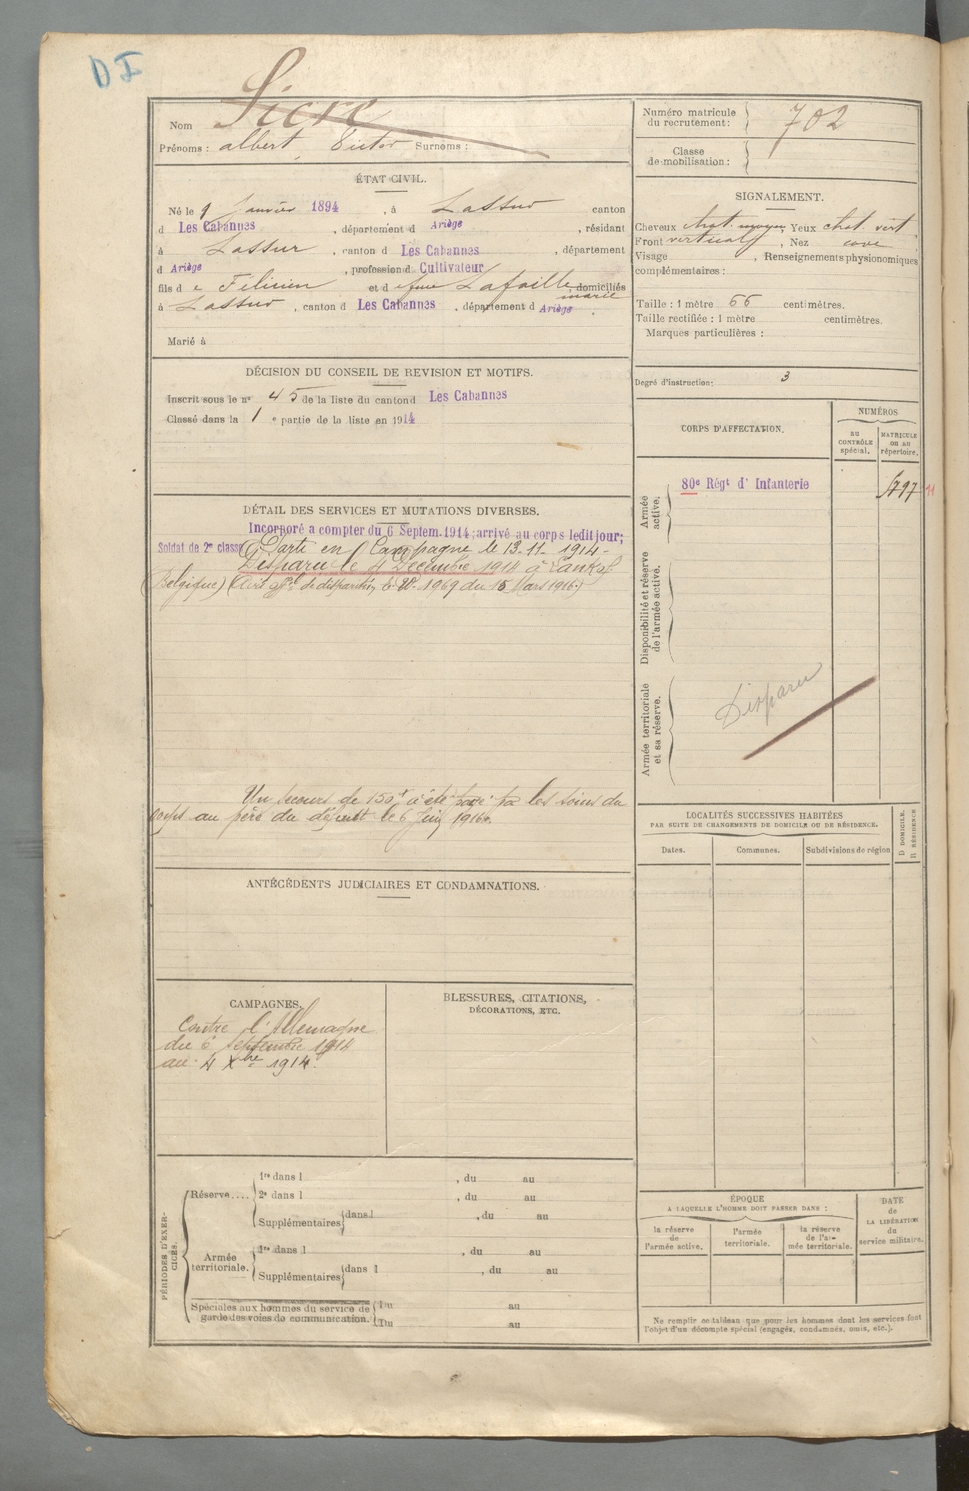 DI
Nom Sicre
Prénoms : albert, Victor Surnoms :
ÉTAT CIVIL.
Né le 9 janvier 1894, à Lassur canton
d Les Cabannes, département d Ariège, résidant
à Lassur, canton d Les Cabannes, département
d Ariège, profession d Cultivateur
fils de Félicien et d Lafaille domiciliés
marie
à Lassur, canton d Les Cabannes, département d Ariège.
Marié à
DÉCISION DU CONSEIL DE REVISION ET MOTIFS.
Inscrit sous le nº 45 de la liste du canton d Les Cabannes
Classé dans la 1 e partie de la liste en 1914
DÉTAIL DES SERVICES ET MUTATIONS DIVERSES.
Incorporé a compter du 6 Septem. 1914; arrivé au corps ledit jour;
Soldat de 2e classe Parti en Campagne le 13-11-1914-
Disparu le 4 Décembre 1914 à
Belgique) (Avis offel de disparition 1969 du 15 Mars 1916.)
Un secours de 150f a été payé par les soins du
corps au père du défunt le 6 juin 1916.
ANTÉCÉDENTS JUDICIAIRES ET CONDAMNATIONS.
CAMPAGNES.
Contre l'Allemagne
du 6 septembre 1914
au 4 Xbre 1914.
BLESSURES, CITATIONS,
DÉCORATIONS, ETC.
PÉRIODES D'EXER-
CICES.
Réserve....
1re dans l , du au
2e dans l , du au
Supplémentaires dans l , du au
Armée
territoriale.
1re dans l , du au
Supplémentaires dans l , du au
Spéciales aux hommes du service de
garde des voies de communication.
Du au
Du au
Numéro matricule
du recrutement : 702
Classe
de mobilisation :
SIGNALEMENT.
Cheveux chat. moyen, Yeux chat. vert
Front vertical, Nez cave
Visage , Renseignements physionomiques
complémentaires :
Taille : 1 mètre 66 centimètres.
Taille rectifiée : 1 mètre centimètres.
Marques particulières :
Degré d'instruction : 3
CORPS D'AFFECTATION.
NUMÉROS
au
CONTRÔLE
spécial.
MATRICULE
OU AU
répertoire.
Armée
active.
80e Régt d' Infanterie
11
Disponibilité et réserve
de l'armée active.
Armée territoriale
et sa réserve.
Disparu
LOCALITÉS SUCCESSIVES HABITÉES
PAR SUITE DE CHANGEMENTS DE DOMICILE OU DE RÉSIDENCE.
D DOMICILE.
R RÉSIDENCE
Dates. Communes. Subdivisions de région
ÉPOQUE
A LAQUELLE L'HOMME DOIT PASSER DANS :
la réserve
de
l'armée active.
l'armée
territoriale.
la réserve
de l'ar-
mée territoriale.
DATE
de
LA LIBÉRATION
du
service militaire.
Ne remplir ce tableau que pour les hommes dont les services font
l'objet d'un décompte spécial (engagés, condamnés, omis, etc.).